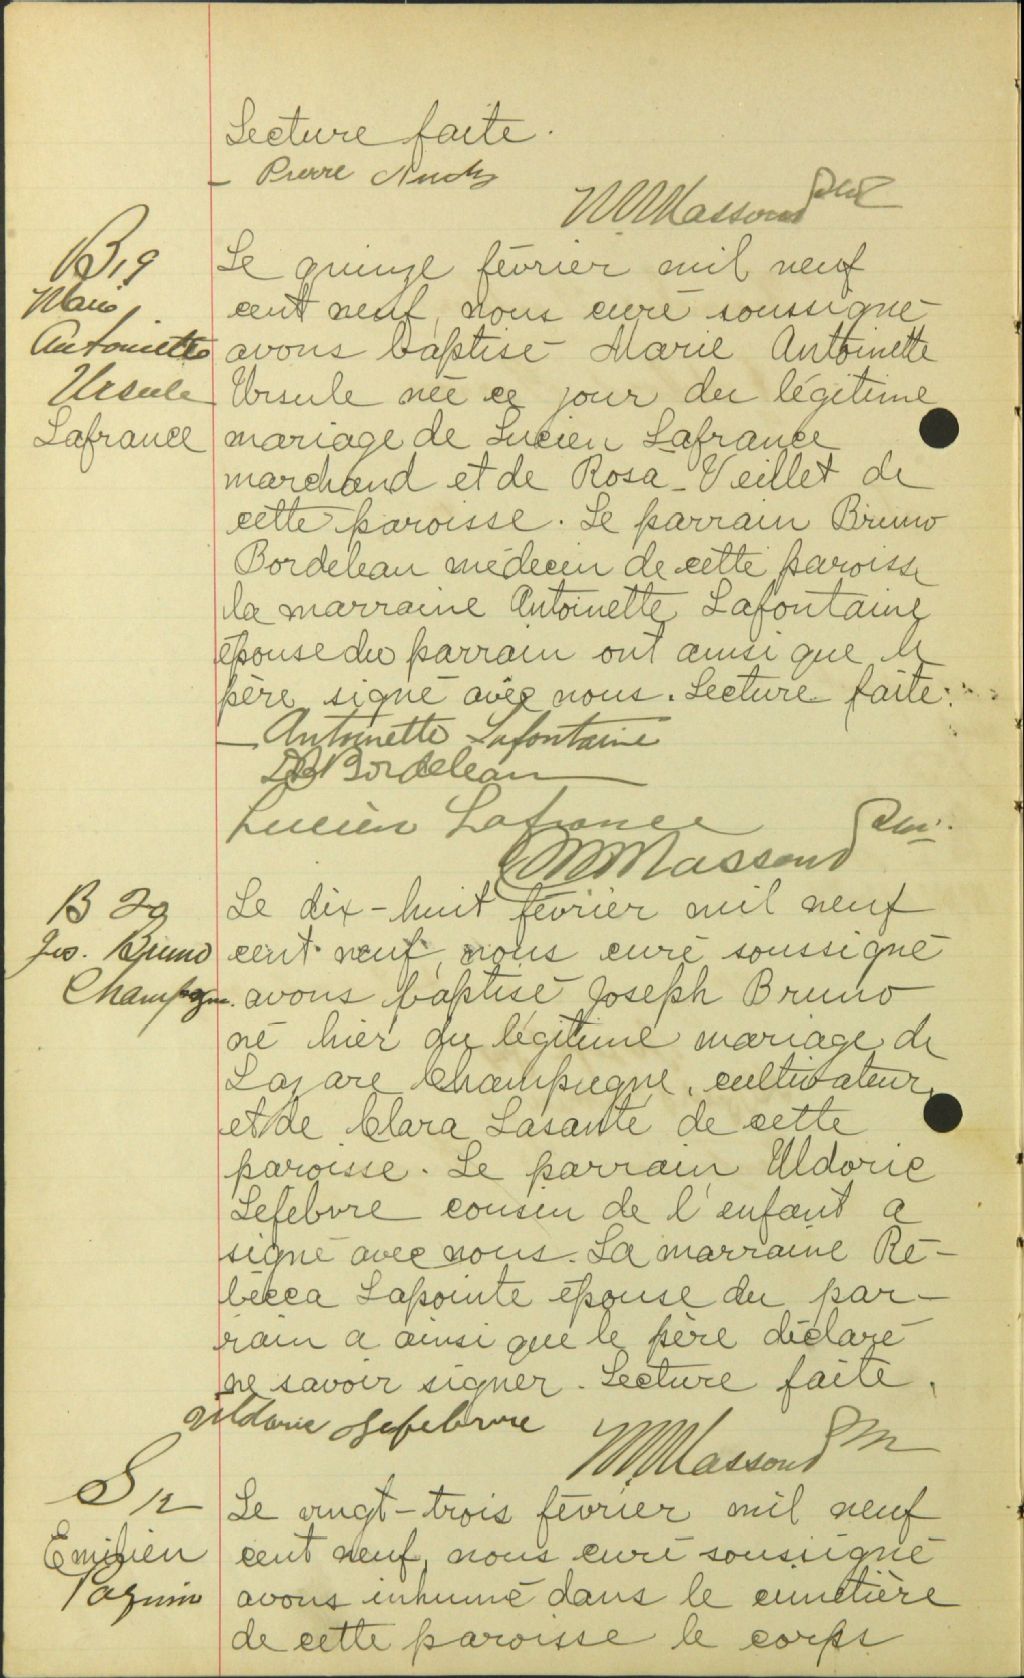 Lecture faite.
Pierre
Massoud Ptre
B 19
Marie
Antoinette
Ursule
Lafrance
Le quinze février mil neuf
cent neuf, nous curé soussigné
avons baptisé Marie Antoinette
Ursule née ce jour du légitime
mariage de Lucien Lafrance
marchand et de Rosa Veillet de
cette paroisse. Le parrain Bruno
Bordeleau médecin de cette paroisse
la marraine Antoinette Lafontaine
épouse du parrain ont ainsi que le
père signé avec nous. Lecture faite.
Antoinette Lafontaine
Bordeleau
Lucien Lafrance
Massoud
B 20
Jos. Bruno
Champagne
Le dix-huit février mil neuf
cent neuf, nous curé soussigné
avons baptisé Joseph Bruno
né hier du légitime mariage de
Lazare Champagne, cultivateur,
et de Clara Lasanté de cette
paroisse. Le parrain Uldoric
Lefebvre cousin de l'enfant a
signé avec nous. La marraine Ré-
becca Lapointe épouse du par-
rain a ainsi que le père déclaré
ne savoir signer. Lecture faite.
Uldoric Lefebvre
Massoud
S 12
Emilien
Paquin
Le vingt-trois février mil neuf
cent neuf, nous curé soussigné
avons inhumé dans le cimetière
de cette paroisse le corps